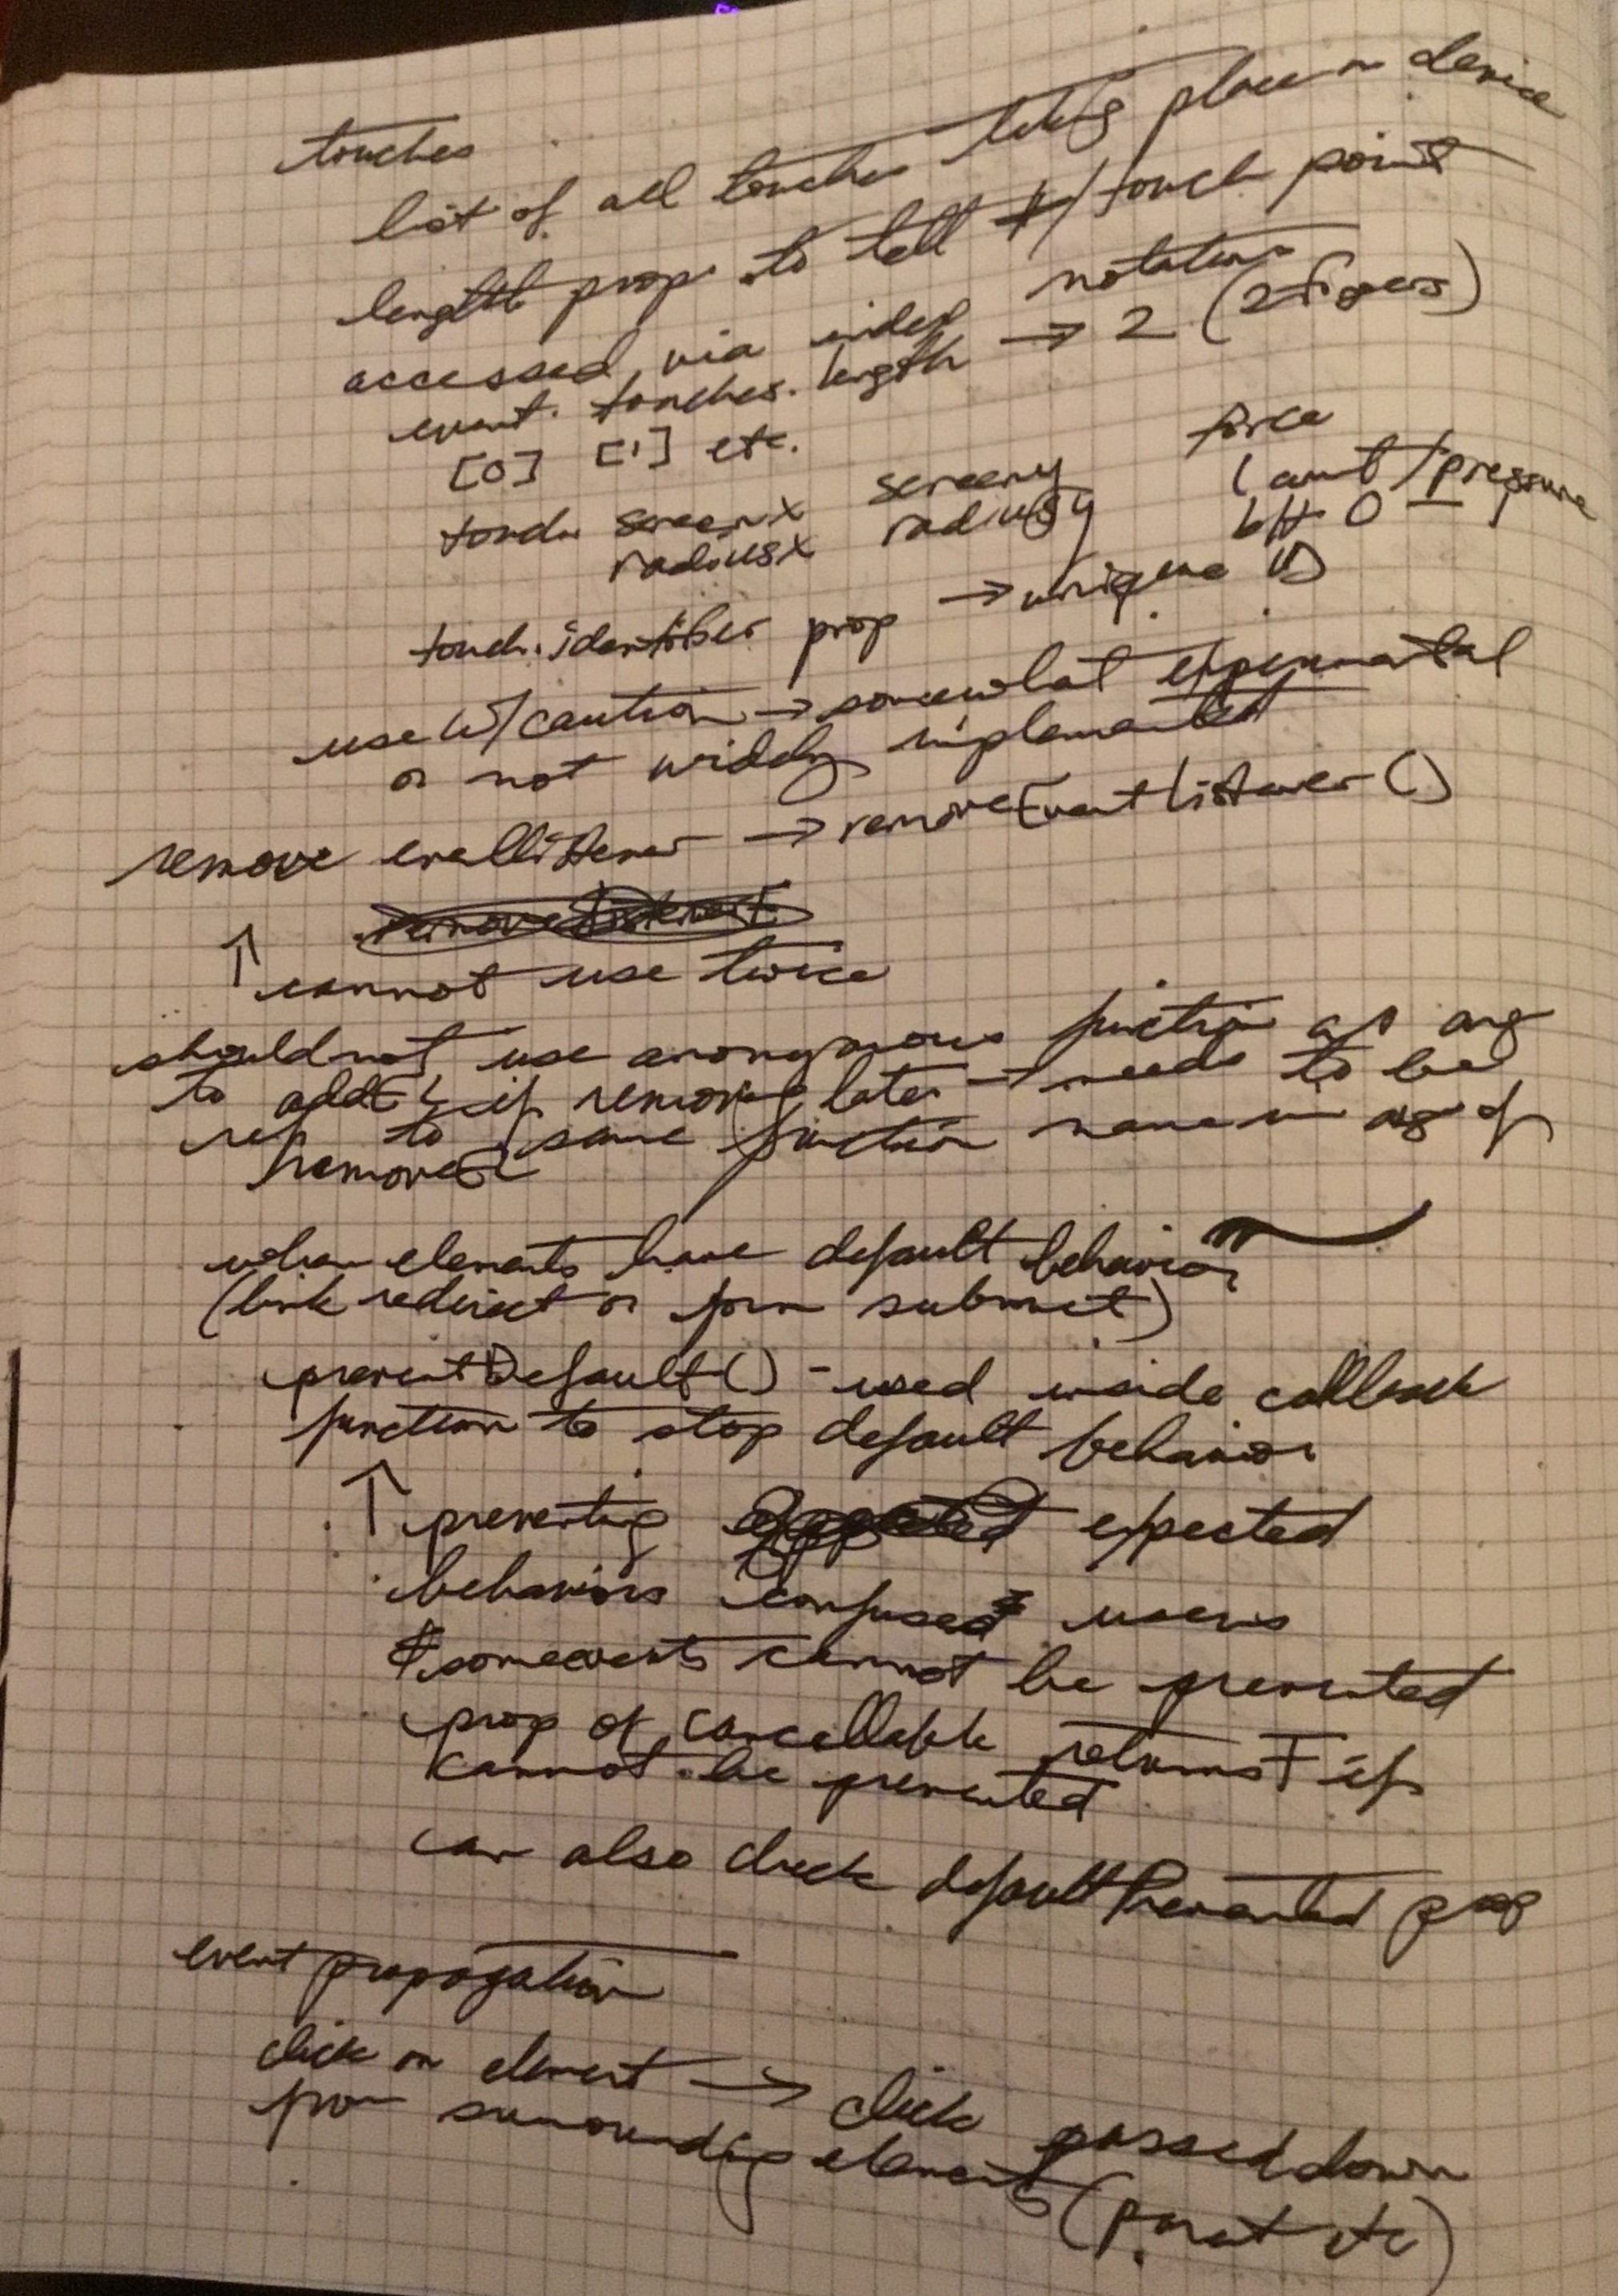 touches
list of all touches taking place on device
length prop to tell #/touch point
accessed via index notation
event.touches.length → 2 (2 fingers)
[0] [1] etc.
touch. screenx screeny
radiusx radiusy
force
(amt/pressure
btt 0 –
touch.identifier prop → unique ID
use w/caution → somewhat experimental
or not widely implemented
remove → removeEventListener()
↑ cannot use twice
should not use anonymous function as arg
to addEL if removing later → needs to be
ref to same function name in arg of
removeEL
when elements have default behavior
(link redirect or form submit)
preventDefault() - used inside callback
function to stop default behavior
↑ preventing expected
behaviors confuses users
some events cannot be prevented
prop of cancellable returns F if
cannot be prevented
can also check defaultPrevented prop
event propogation
click on element → click passed down
from surrounding elements (parent etc)